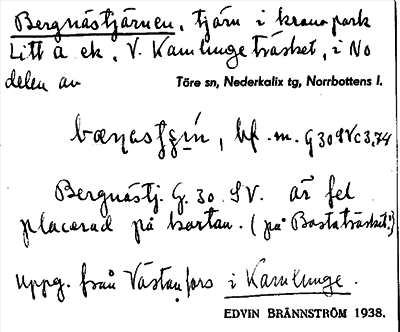 Bergnästjärnen, tjärn i kronopark
Litt a ek, V. Kamlungeträsket, i No
delen av Töre sn, Nederkalix tg, Norrbottens l.
bf. m. G30SVc3,74
Bergnästj. G. 30. SV. är fel
placerad på kartan. (på Bastaträsket!)
Uppg. från Västanfors i Kamlunge.
EDVIN BRÄNNSTRÖM 1938.